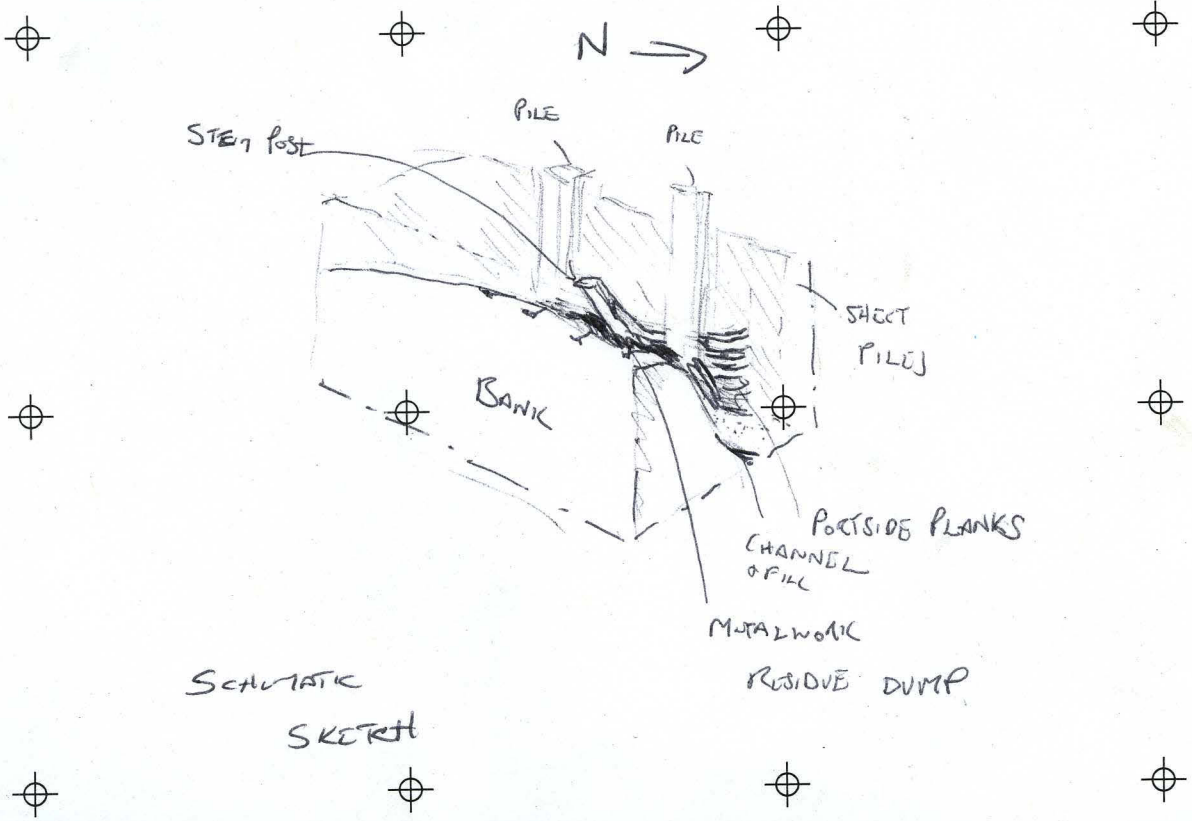 N
PILE
PILE
STEM POST
SHEET
PILES
BANK
PORTSIDE PLANKS
CHANNEL
& FILL
METALWORK
RESIDUE DUMP
SCHEMATIC
SKETCH